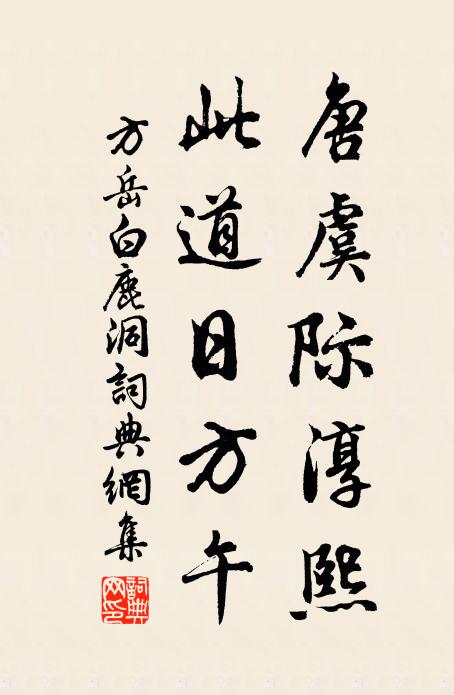 唐虞际淳熙
此道日方午
方岳白鹿洞詞典網集
詞典網印